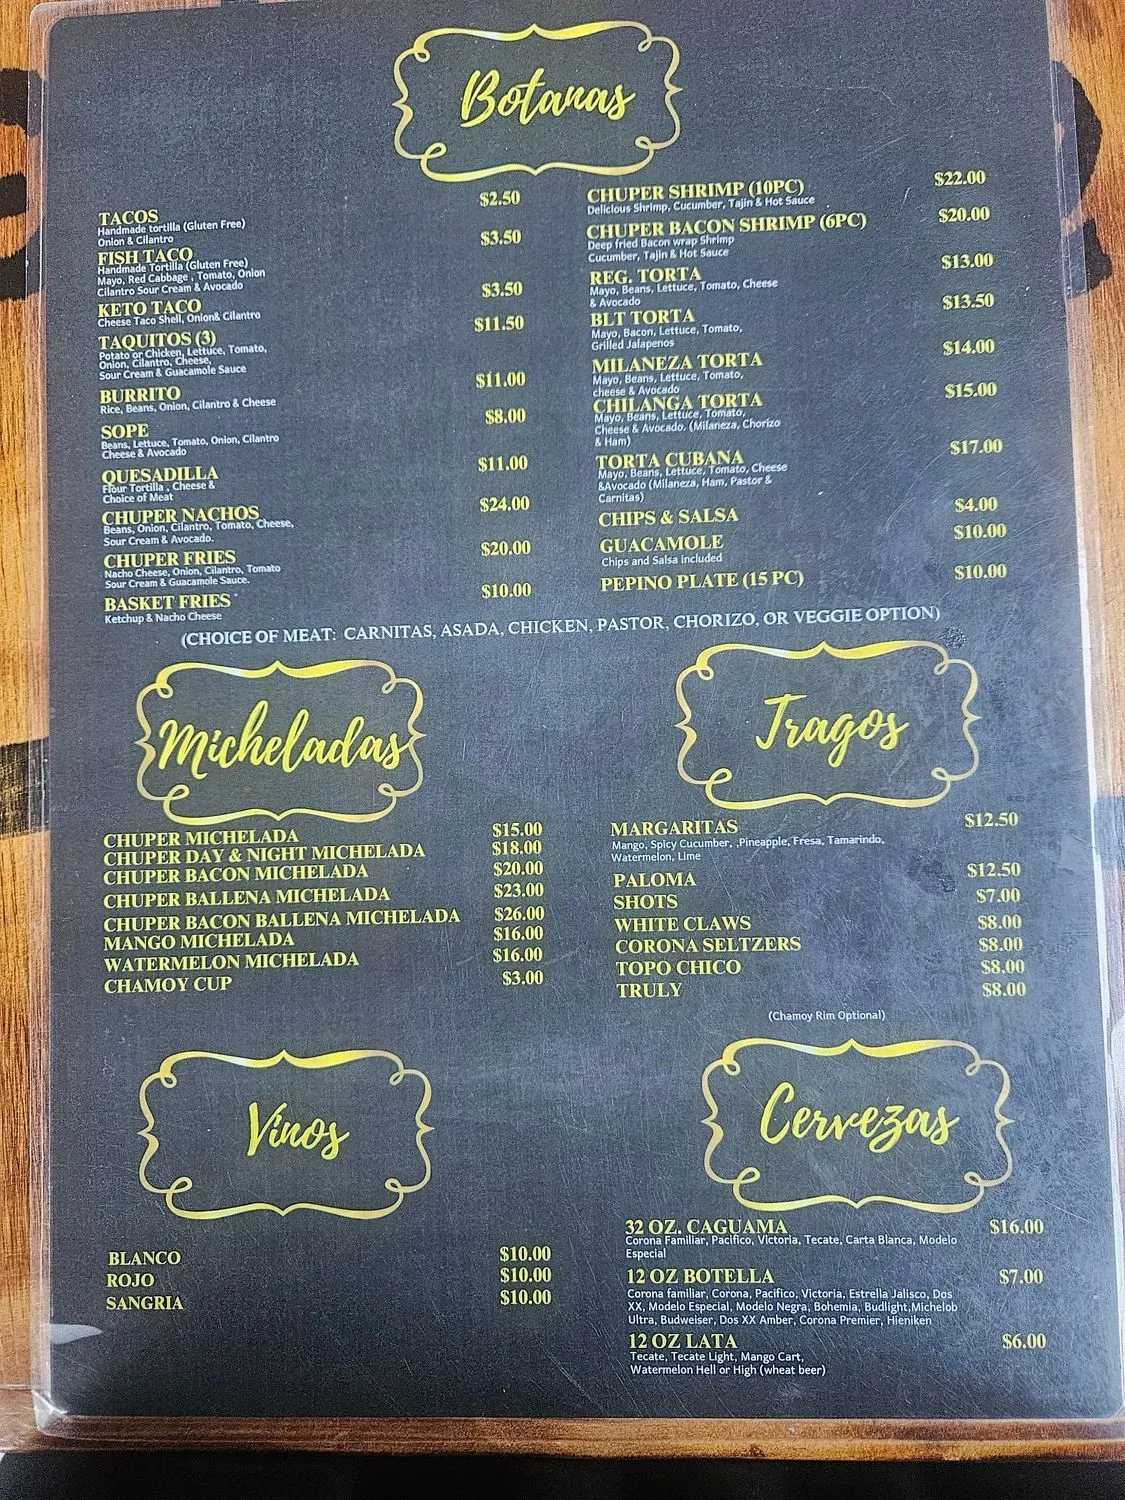 Botanas
TACOS $2.50
Handmade tortilla (Gluten Free)
Onion & Cilantro
FISH TACO $3.50
Handmade Tortilla (Gluten Free)
Mayo, Red Cabbage , Tomato, Onion
Cilantro Sour Cream & Avocado
KETO TACO $3.50
Cheese Taco Shell, Onion& Cilantro
TAQUITOS (3) $11.50
Potato or Chicken, Lettuce, Tomato,
Onion, Cilantro, Cheese,
Sour Cream & Guacamole Sauce
BURRITO $11.00
Rice, Beans, Onion, Cilantro & Cheese
SOPE $8.00
Beans, Lettuce, Tomato, Onion, Cilantro
Cheese & Avocado
QUESADILLA $11.00
Flour Tortilla , Cheese &
Choice of Meat
CHUPER NACHOS $24.00
Beans, Onion, Cilantro, Tomato, Cheese,
Sour Cream & Avocado.
CHUPER FRIES $20.00
Nacho Cheese, Onion, Cilantro, Tomato
Sour Cream & Guacamole Sauce.
BASKET FRIES $10.00
Ketchup & Nacho Cheese
CHUPER SHRIMP (10PC) $22.00
Delicious Shrimp, Cucumber, Tajin & Hot Sauce
CHUPER BACON SHRIMP (6PC) $20.00
Deep fried Bacon wrap Shrimp
Cucumber, Tajin & Hot Sauce
REG. TORTA $13.00
Mayo, Beans, Lettuce, Tomato, Cheese
& Avocado
BLT TORTA $13.50
Mayo, Bacon, Lettuce, Tomato,
Grilled Jalapenos
MILANEZA TORTA $14.00
Mayo, Beans, Lettuce, Tomato,
cheese & Avocado
CHILANGA TORTA $15.00
Mayo, Beans, Lettuce, Tomato,
Cheese & Avocado. (Milaneza, Chorizo
& Ham)
TORTA CUBANA $17.00
Mayo, Beans, Lettuce, Tomato, Cheese
&Avocado (Milaneza, Ham, Pastor &
Carnitas)
CHIPS & SALSA $4.00
GUACAMOLE $10.00
Chips and Salsa included
PEPINO PLATE (15 PC) $10.00
(CHOICE OF MEAT: CARNITAS, ASADA, CHICKEN, PASTOR, CHORIZO, OR VEGGIE OPTION)
Micheladas
CHUPER MICHELADA $15.00
CHUPER DAY & NIGHT MICHELADA $18.00
CHUPER BACON MICHELADA $20.00
CHUPER BALLENA MICHELADA $23.00
CHUPER BACON BALLENA MICHELADA $26.00
MANGO MICHELADA $16.00
WATERMELON MICHELADA $16.00
CHAMOY CUP $3.00
Tragos
MARGARITAS $12.50
Mango, Spicy Cucumber, ,Pineapple, Fresa, Tamarindo,
Watermelon, Lime
PALOMA $12.50
SHOTS $7.00
WHITE CLAWS $8.00
CORONA SELTZERS $8.00
TOPO CHICO $8.00
TRULY $8.00
(Chamoy Rim Optional)
Vinos
BLANCO $10.00
ROJO $10.00
SANGRIA $10.00
Cervezas
32 OZ. CAGUAMA $16.00
Corona Familiar, Pacifico, Victoria, Tecate, Carta Blanca, Modelo
Especial
12 OZ BOTELLA $7.00
Corona familiar, Corona, Pacifico, Victoria, Estrella Jalisco, Dos
XX, Modelo Especial, Modelo Negra, Bohemia, Budlight,Michelob
Ultra, Budweiser, Dos XX Amber, Corona Premier, Hieniken
12 OZ LATA $6.00
Tecate, Tecate Light, Mango Cart,
Watermelon Hell or High (wheat beer)